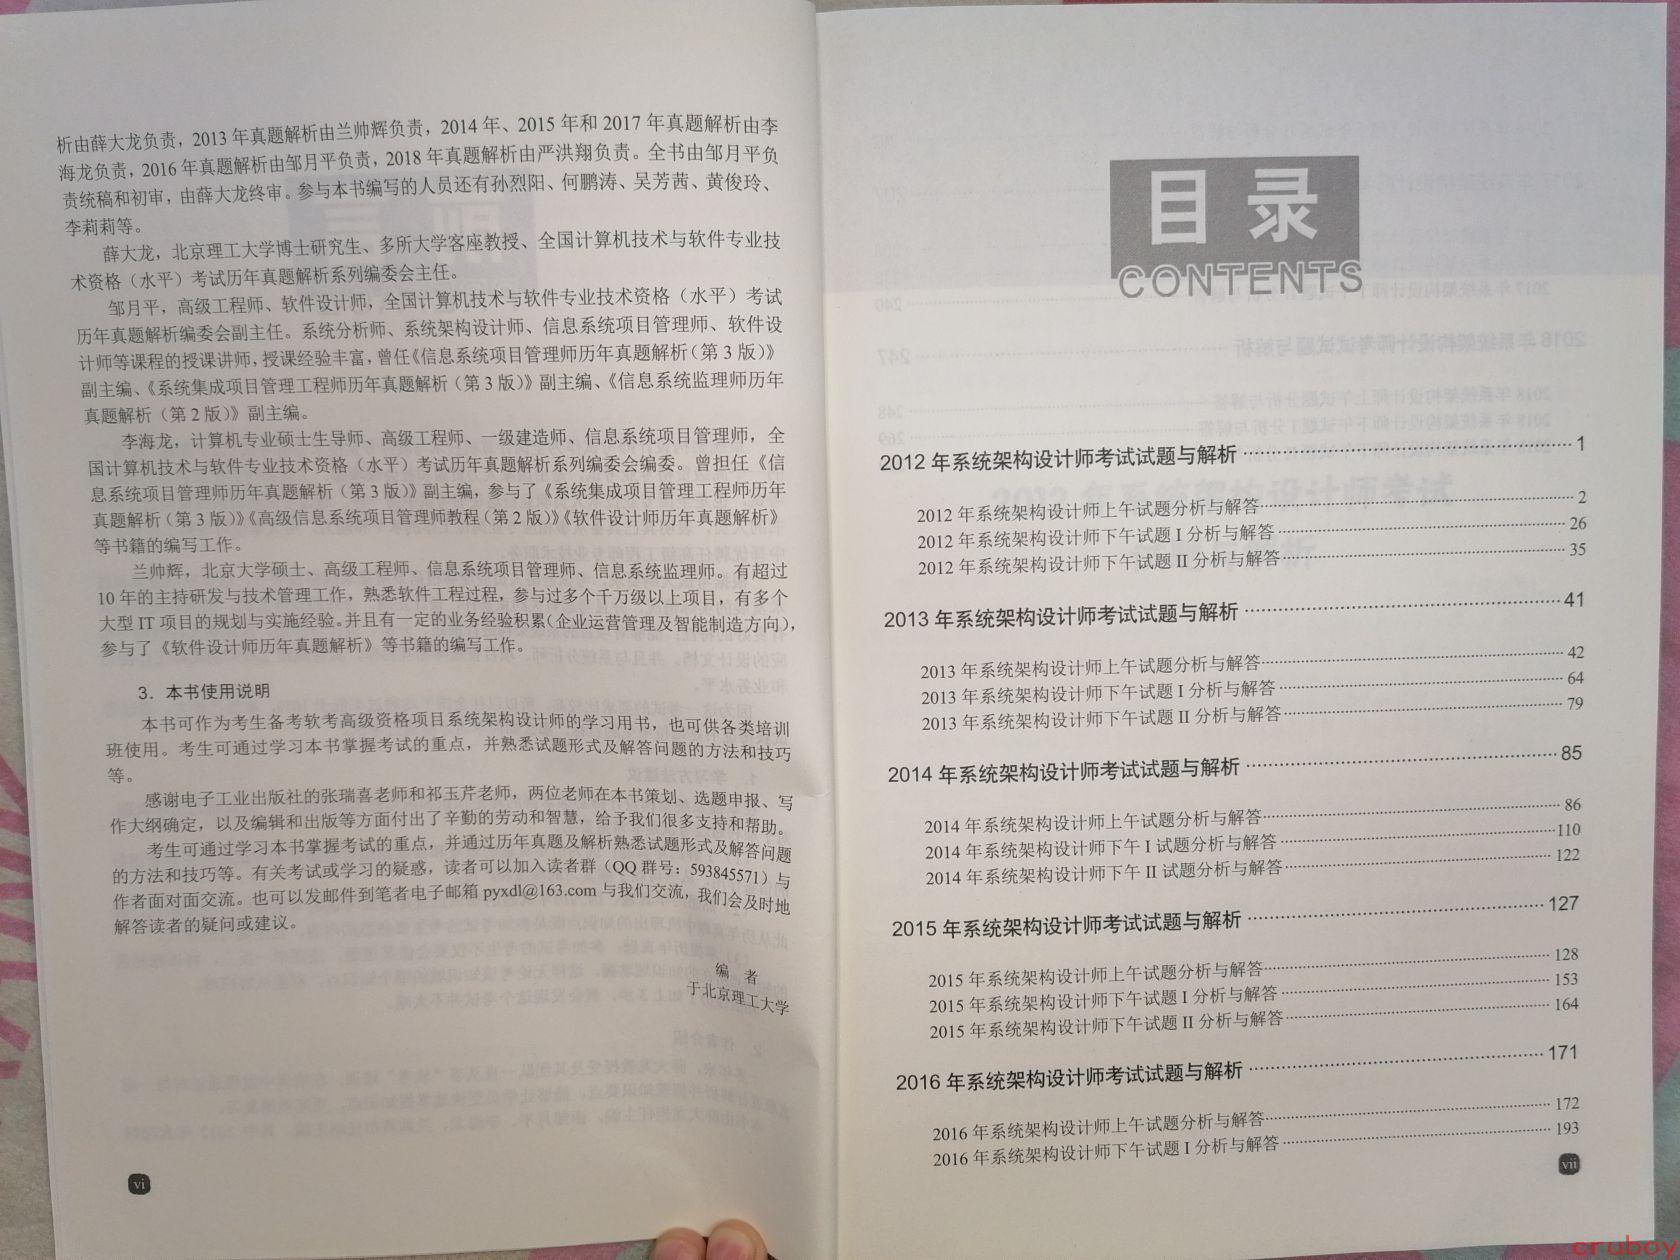 析由薛大龙负责，2013 年真题解析由兰帅辉负责，2014 年、2015 年和 2017 年真题解析由李
海龙负责，2016 年真题解析由邹月平负责，2018 年真题解析由严洪翔负责。全书由邹月平负
责统稿和初审，由薛大龙终审。参与本书编写的人员还有孙烈阳、何鹏涛、吴芳茜、黄俊玲、
李莉莉等。
薛大龙，北京理工大学博士研究生、多所大学客座教授、全国计算机技术与软件专业技
术资格（水平）考试历年真题解析系列编委会主任。
邹月平，高级工程师、软件设计师，全国计算机技术与软件专业技术资格（水平）考试
历年真题解析编委会副主任。系统分析师、系统架构设计师、信息系统项目管理师、软件设
计师等课程的授课讲师，授课经验丰富，曾任《信息系统项目管理师历年真题解析（第 3 版）》
副主编、《系统集成项目管理工程师历年真题解析（第 3 版）》副主编、《信息系统监理师历年
真题解析（第 2 版）》副主编。
李海龙，计算机专业硕士生导师、高级工程师、一级建造师、信息系统项目管理师，全
国计算机技术与软件专业技术资格（水平）考试历年真题解析系列编委会编委。曾担任《信
息系统项目管理师历年真题解析（第 3 版）》副主编，参与了《系统集成项目管理工程师历年
真题解析（第 3 版）》《高级信息系统项目管理师教程（第 2 版）》《软件设计师历年真题解析》
等书籍的编写工作。
兰帅辉，北京大学硕士、高级工程师、信息系统项目管理师、信息系统监理师。有超过
10 年的主持研发与技术管理工作，熟悉软件工程过程，参与过多个千万级以上项目，有多个
大型 IT 项目的规划与实施经验。并且有一定的业务经验积累（企业运营管理及智能制造方向），
参与了《软件设计师历年真题解析》等书籍的编写工作。
3．本书使用说明
本书可作为考生备考软考高级资格项目系统架构设计师的学习用书，也可供各类培训
班使用。考生可通过学习本书掌握考试的重点，并熟悉试题形式及解答问题的方法和技巧
等。
感谢电子工业出版社的张瑞喜老师和祁玉芹老师，两位老师在本书策划、选题申报、写
作大纲确定，以及编辑和出版等方面付出了辛勤的劳动和智慧，给予我们很多支持和帮助。
考生可通过学习本书掌握考试的重点，并通过历年真题及解析熟悉试题形式及解答问题
的方法和技巧等。有关考试或学习的疑惑，读者可以加入读者群（QQ 群号：593845571）与
作者面对面交流。也可以发邮件到笔者电子邮箱 pyxdl@163.com 与我们交流，我们会及时地
解答读者的疑问或建议。
编 者
于北京理工大学
vi
目录
CONTENTS
2012 年系统架构设计师考试试题与解析 1
2012 年系统架构设计师上午试题分析与解答 2
2012 年系统架构设计师下午试题 I 分析与解答 26
2012 年系统架构设计师下午试题 II 分析与解答 35
2013 年系统架构设计师考试试题与解析 41
2013 年系统架构设计师上午试题分析与解答 42
2013 年系统架构设计师下午试题 I 分析与解答 64
2013 年系统架构设计师下午试题 II 分析与解答 79
2014 年系统架构设计师考试试题与解析 85
2014 年系统架构设计师上午试题分析与解答 86
2014 年系统架构设计师下午 I 试题分析与解答 110
2014 年系统架构设计师下午 II 试题分析与解答 122
2015 年系统架构设计师考试试题与解析 127
2015 年系统架构设计师上午试题分析与解答 128
2015 年系统架构设计师下午试题 I 分析与解答 153
2015 年系统架构设计师下午试题 II 分析与解答 164
2016 年系统架构设计师考试试题与解析 171
2016 年系统架构设计师上午试题分析与解答 172
2016 年系统架构设计师下午试题 I 分析与解答 193
vii
cruboy